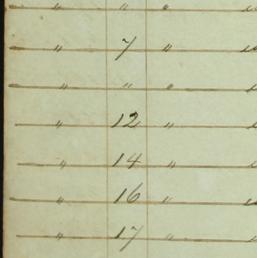 " " "
" 7 "
" " "
" 12 "
" 14 "
" 16 "
" 17 "